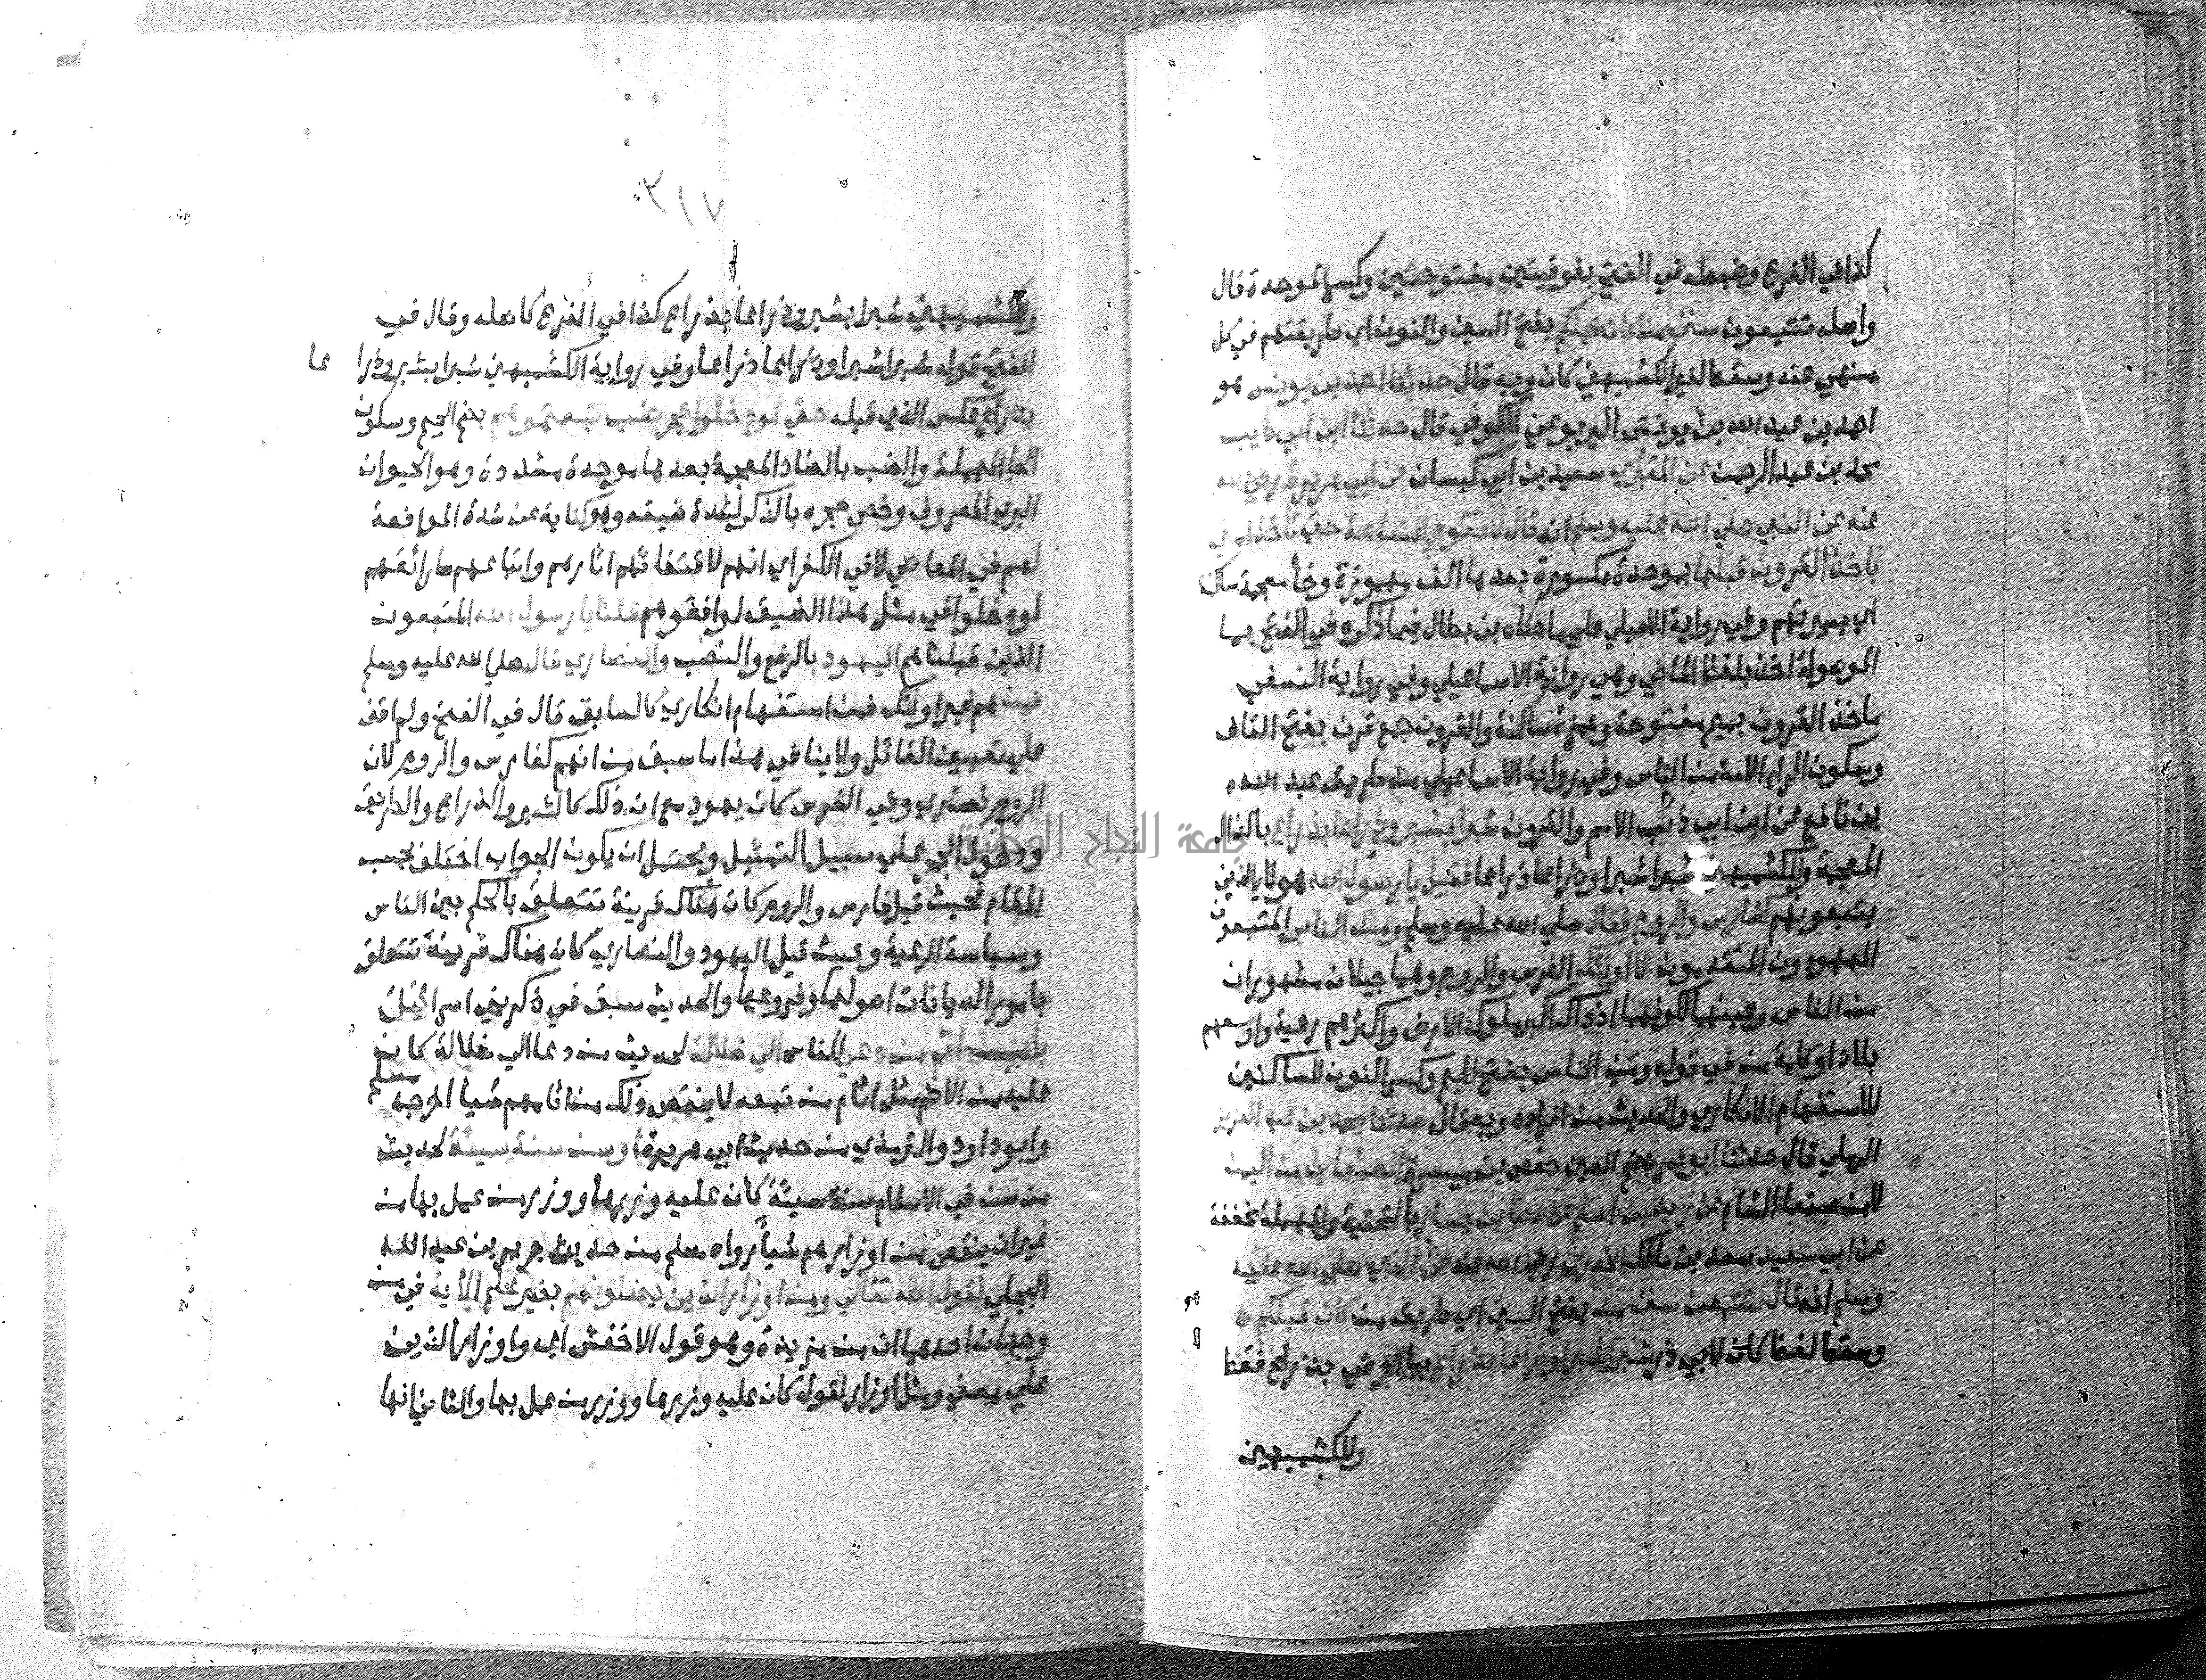 كذا في الفرع وضبطه في الفتح بفوقيتين مفتوحتين وكسر الموحدة قال
واصله تتبعون سنن من كان قبلكم بفتح السين والنون اي طريقتهم في كل
منهي عنه وسقط لغير الكشميهني كان وبه قال حدثنا احمد بن يونس هو
احمد بن عبد الله بن يونس اليربوعي الكوفي قال حدثنا ابن ابي ذيب
محمد بن عبد الرحمن عن المقبري سعيد بن ابي كيسان عن ابي هريرة رضي الله
عنه عن النبي صلي الله عليه وسلم انه قال لا تقوم الساعة حتي تأخذ امتي
باخذ القرون قبلها بموحدة مكسورة بعدها الف مهموزة وخأ معجمة ساكنة
اي بسيرتهم وفي رواية الاصيلي علي ما حكاه بن بطال فيما ذكره في الفتح بما
الموصولة اخذ بلفظ الماضي وهي رواية الاسماعيلي وفي رواية النسفي
ماخذ القرون بميم مفتوحة وهمزة ساكنة والقرون جمع قرن بفتح القاف
وسكون الراء الامة من الناس وفي رواية الاسماعيلي من طريق عبد الله
بن نافع عن ابن ابي ذئب الامم والقرون شبرا بشبر وذراعا بذراع بالذال
المعجمة وللكشميهني شبرا شبرا وذراعا ذراعا فقيل يا رسول الله هولاء الذين
يتبعونهم كفارس والروم فقال صلي الله عليه وسلم ومن الناس المتبعون
المعهودون المتقدمون الا اولئك الفرس والروم وهما جيلان مشهوران
من الناس وعينهما لكونهما اذ ذاك اكبر ملوك الارض واكثرهم رعية واوسعهم
بلادا وكلمة من في قوله ومن الناس بفتح الميم وكسر النون للساكنين
للاستفهام الانكاري والحديث من افراده وبه قال حدثنا محمد بن عبد العزيز
الرملي قال حدثنا ابو عمر بضم العين حفص بن ميسرة الصنعاني من اليمن
لا من صنعا الشام عن زيد بن اسلم عن عطا بن يسار بالتحتية والمهملة مخففة
عن ابي سعيد سعد بن مالك الخدري رضي الله عنه عن النبي صلي الله عليه
وسلم انه قال لتتبعن سنن من بفتح السين اي طريق من كان قبلكم
وسقط لفظ كان لابي ذر شبرا شبرا وذراعا بذراع
وللكشميهني
٣١٧
وللكشميهني شبرا بشبر وذراعا بذراع كذا في الفرع كاصله وقال في
الفتح قوله شبرا شبرا وذراعا ذراعا وفي رواية الكشميهني شبرا بشبر وذرا عا
بذراع عكس الذي قبله حتي لو دخلوا جحر ضب تبعتموهم بضم الجيم وسكون
الحا المهملة والضب بالضاد المعجمة بعدها موحدة مشددة وهو الحيوان
البري المعروف وخص جحره بالذكر لشدة ضيقه وهو كناية عن شدة الموافقة
لهم في المعاصي لا في الكفر اي انهم لاقتفائهم اثارهم واتباعهم طرائقهم
لو دخلوا في مثل هذا الضيق لوافقوهم قلنا يا رسول الله المتبعون
الذين قبلنا هم اليهود بالرفع والنصب والنصاري قال صلي الله عليه وسلم
فمن هم غير اولئك فمن استفهام انكاري كالسابق قال في الفتح ولم اقف
علي تعيين القائل ولا ينافي هذا ما سبق من انهم كفارس والروم لان
الروم نصاري وفي الفرس كان يهود مع ان ذلك كالشبر والذراع والطريق
ودخول الجحر علي سبيل التمثيل ويحتمل ان يكون الجواب اختلف بحسب
المقام فحيث قيل فارس والروم كان هناك قرينة تتعلق بالحكم بين الناس
وسياسة الرعية وحيث قيل اليهود والنصاري كان هناك قرينة تتعلق
بامور الديانات اصولها وفروعها والحديث سبق في ذكر بني اسرائيل
باب اثم من دعي الناس الي ضلالة لحديث من دعا الي ضلالة كان
عليه من الاثم مثل اثام من تبعه لا ينقص ذلك من اثامهم شيا اخرجه مسلم
وابو داود والترمذي من حديث ابي هريرة او سن سنة سيئة لحديث
من سن في الاسلام سنة سيئة كان عليه وزرها ووزر من عمل بها من
غير ان ينقص من اوزارهم شيأ رواه مسلم من حديث جرير بن عبد الله
البجلي لقول الله تعالي ومن اوزار الذين يضلونهم بغير علم الاية في من
وجهان احدهما ان من مزيدة وهو قول الاخفش اي واوزار الذين
علي معني ومثل اوزار لقوله كان عليه وزرها ووزر من عمل بها والثاني انها
جامعة النجاح الوطنية